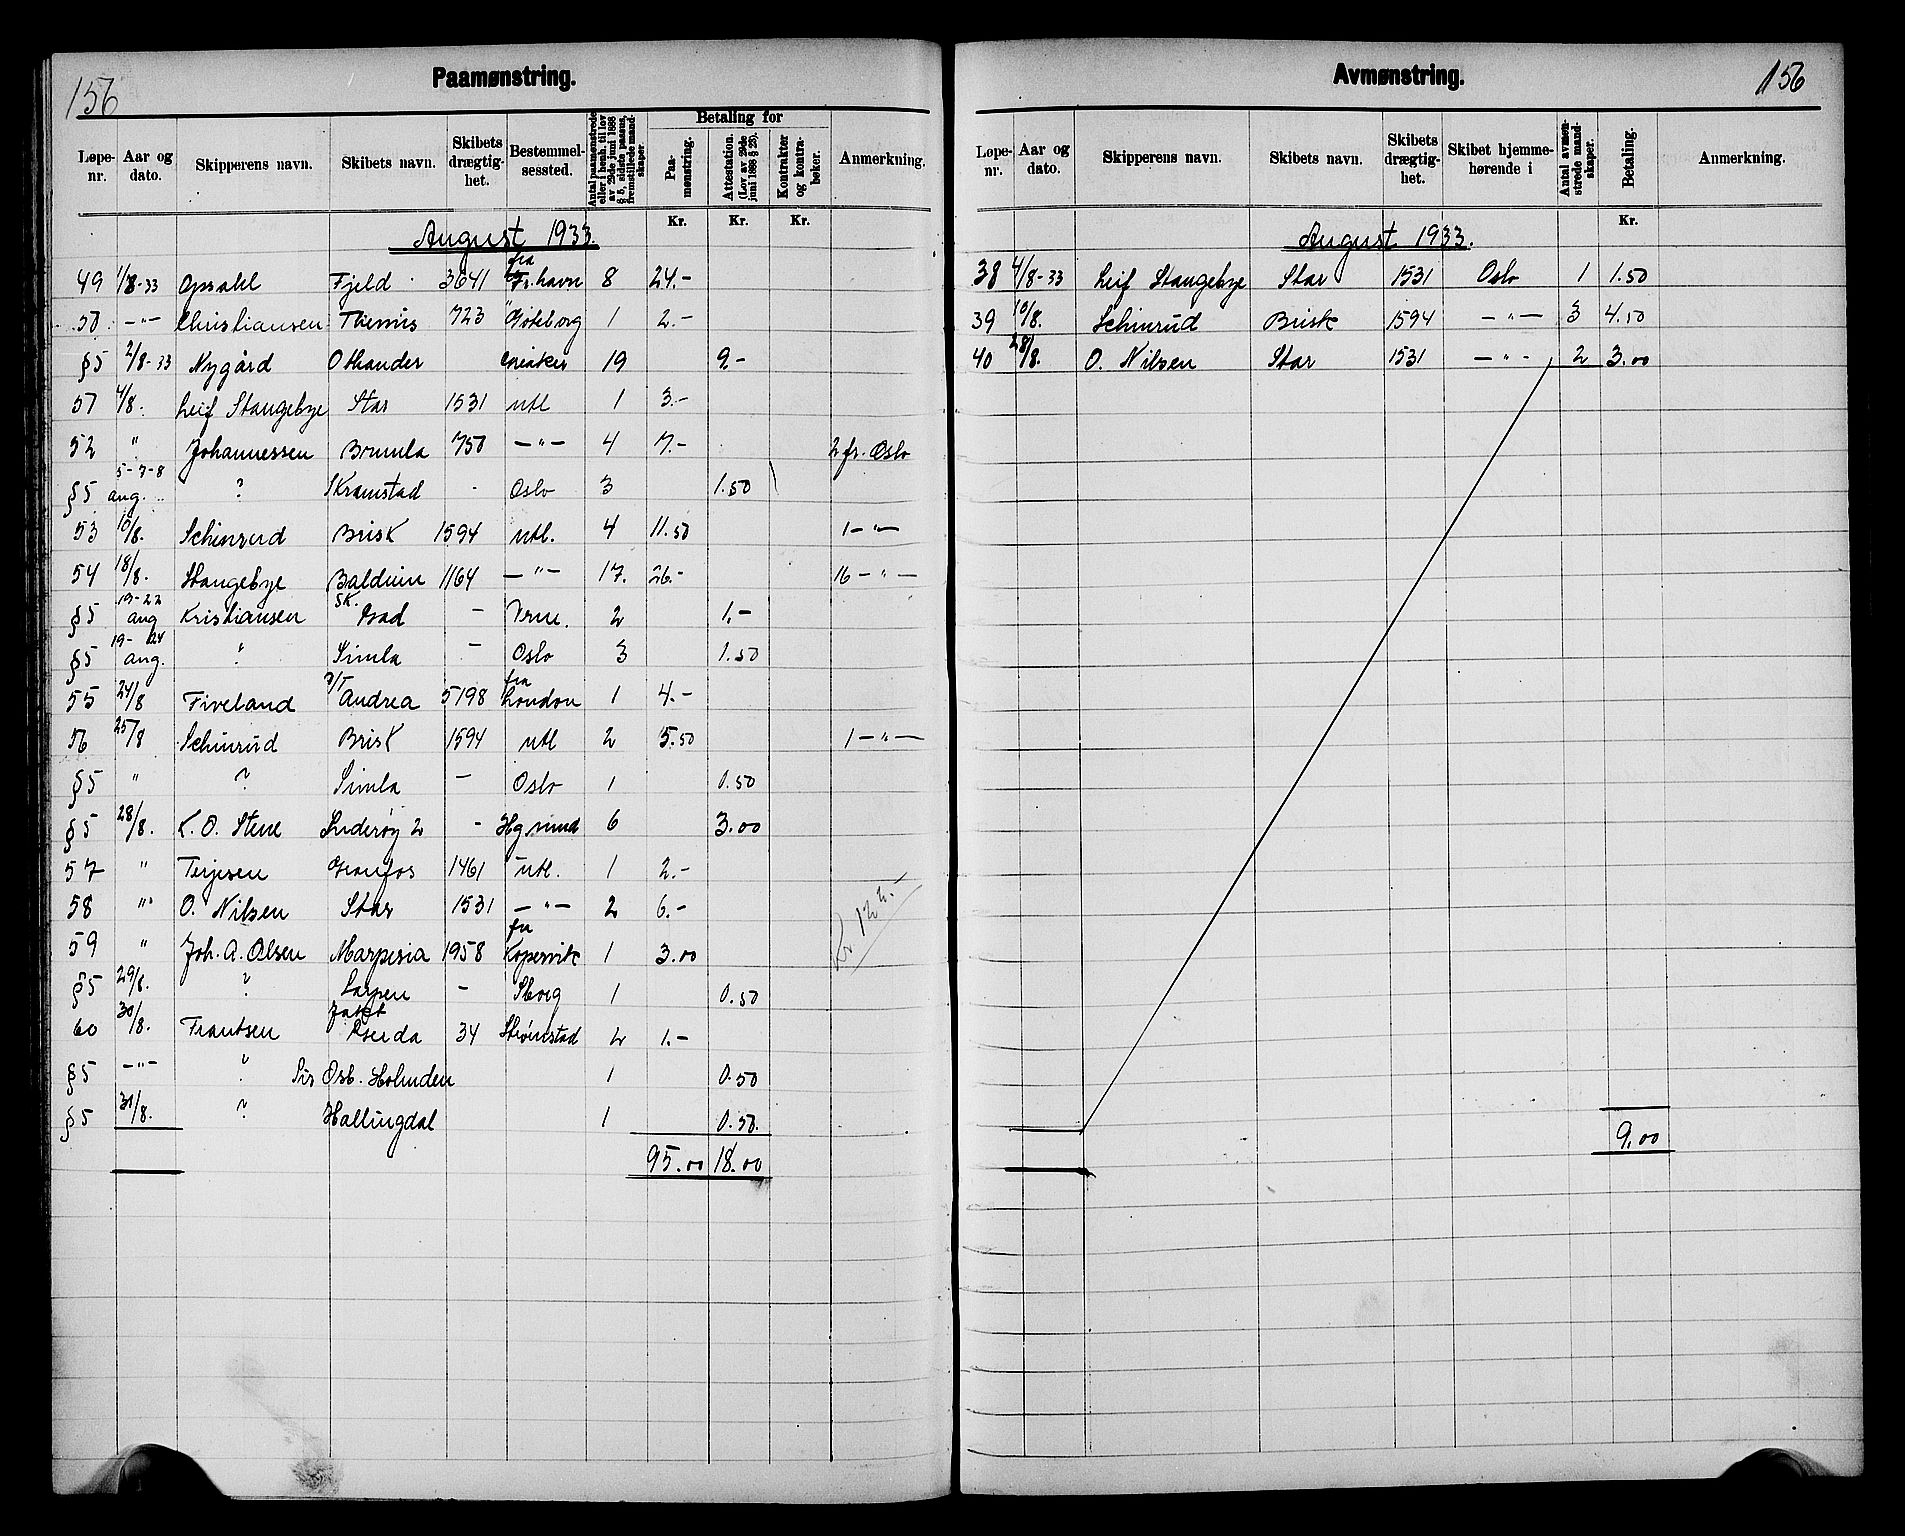 156
Paamønstring.
Løpe-nr. | Aar og dato. | Skipperens navn. | Skibets navn. | Skibets drægtig-het. | Bestemmel-sessted. | Antal paamønstrede eller i henh. til lov av 29de juni 1888 § 5, sidste passus, fremstillede mand-skaper. | Betaling for | Paa-mønstring. | Attestation. (Lov av 29de juni 1888 § 23). | Kontrakter og kontra-bøker. | Anmerkning.
Kr. | Kr. | Kr.
August 1933.
49 | 1/8-33 | Opsahl | Fjeld | 3641 | fra Fr.havn | 8 | 24.-
50 | -"- | Christiansen | Themis | 723 | " Göteborg | 1 | 2.-
§5 | 2/8-33 | Nygård | Othander | 19 | 9.-
51 | 4/8. | Leif Stangebye | Star | 1531 | utl | 1 | 3.-
52 | " | Johannessen | Brumla | 750 | -"- | 4 | 7.- | 2 fr. Oslo
§5 | 5-7-8 aug. | ? | Skramstad | - | Oslo | 3 | 1.50
53 | 10/8. | Schinrud | Brisk | 1594 | utl. | 4 | 11.50 | 1 -"-
54 | 18/8. | Stangebye | Balduin | 1164 | -"- | 17. | 26.- | 16 -"-
§5 | 19-22 aug | Kristiansen | SK. | - | 2 | 1.-
§5 | 19-24 aug. | ? | Simla | - | Oslo | 3 | 1.50
55 | 24/8 | Fiveland | M/T Andrea | 5198 | fra London | 1 | 4.-
56 | 25/8 | Schinrud | Brisk | 1594 | utl | 2 | 5.50 | 1 -"-
§5 | " | ? | Simla | - | Oslo | 1 | 0.50
§5 | 28/8. | K. O. Stene | Inderøy 2 | - | Hg sund | 6 | 3.00
57 | " | Terjesen | Granfos | 1461 | utl. | 1 | 2.-
58 | " | O. Nilsen | Star | 1531 | -"- | 2 | 6.-
59 | " | Joh. A. Olsen | Marpesia | 1958 | fra Kopervik | 1 | 3.00
Kr. 122.-
§5 | 29/8. | ? | Sarpen | - | Sborg | 1 | 0.50
60 | 30/8. | Frantsen | Jakt | 34 | Strömstad | 2 | 1.-
§5 | -"- | ? | Sir Osb. Holmden | 1 | 0.50
§5 | 31/8. | ? | Hallingdal | 1 | 0.50.
95.00 | 18.00
156
Avmønstring.
Løpe-nr. | Aar og dato. | Skipperens navn. | Skibets navn. | Skibets drægtig-het. | Skibet hjemme-hørende i | Antal avmøn-strede mand-skaper. | Betaling. | Anmerkning.
Kr.
August 1933.
38 | 4/8-33 | Leif Stangebye | Star | 1531 | Oslo | 1 | 1.50
39 | 10/8. | Schinrud | Brisk | 1594 | -"- | 3 | 4.50
40 | 28/8. | O. Nilsen | Star | 1531 | -"- | 2 | 3.00
9.00